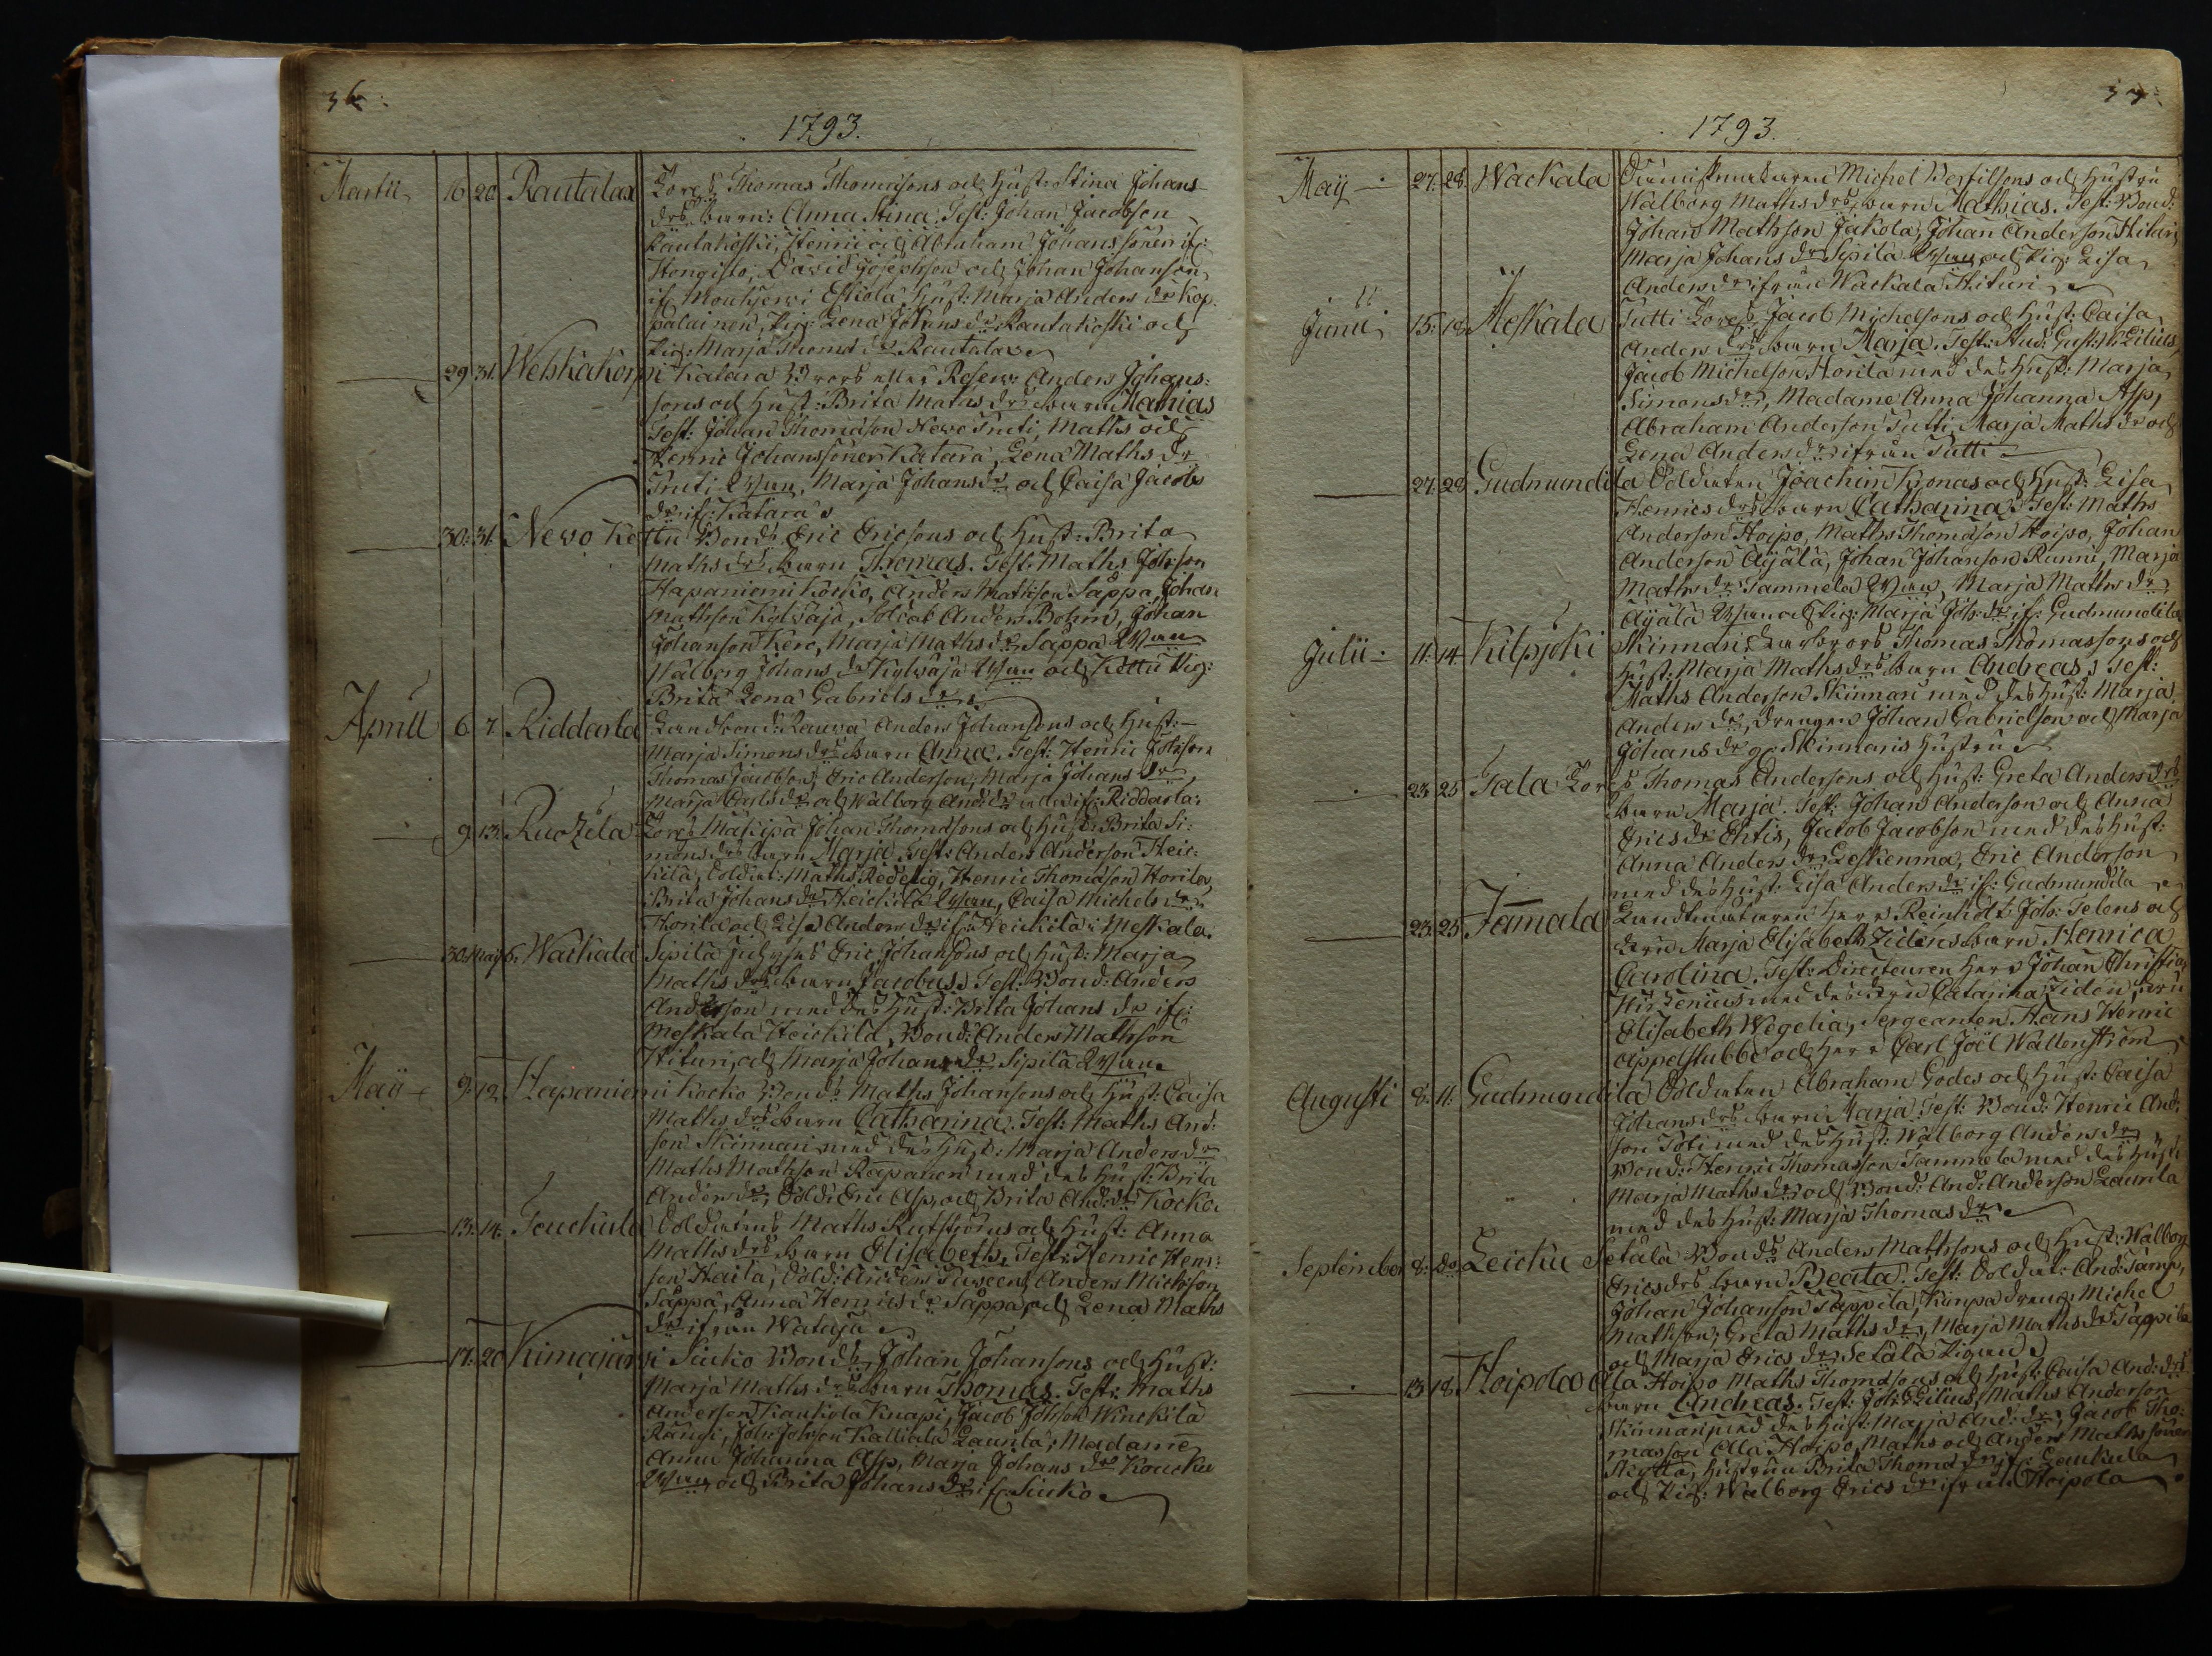 36.
1793.
Martii 16 20 Rautalax Torp. Thomas Thomæsons och Hust: Stina Johans
drs barn: Anna Stina. Test: Johan Jacobson
Rautakoski, Henric och Abraham Johanssöner if:
Hongisto, David Josephson och Johan Johanson
if Mouhjerwi Eskola, Hust: Maria Anders dr Kop-
palainen, Pig: Lena Johans dr Rautakoski och
Pig: Marja Thomæ dr Rautalax
29 31. Wehkakorpi Katara Anders Johans:
sons och Hust: Brita Maths drs barn Mathias
Test: Johan Thomæson Truti, Maths och
Henric Johanssöner Katara, Lena Maths dr
Truti, Marja Johans dr och Caisa Jacobs
dr if: Katara
30. 31. Nevo Kettu Bond. Eric Ericsons och Hust: Brita
Maths drs barn Thomas. Test: Maths Johson
Hapaniemi Kocko, Anders Mathson Sappa, Johan
Mathson Kylwäjä, Soldat Anders Bohm, Johan
Johanson Kero, Marja Maths dr Sappa
Walborg Johans dr Kylwäjä och Kettu Pig:
Brita Lena Gabriels dr
Aprill 6 7 Riddarla Anders Johansons och Hust:
Marja Simons drs barn Anna. Test: Henric Johson
Thomas Jacobson, Eric Anderson, Marja Johans dr
Marja Carls dr och Walborg And: dr if: Riddarla.
9. 13. Ruozila Torp. Mäkipä Johan Thomæsons och Hust: Brita Si-
mons drs barn Marja. Test: Anders Anderson Heic-
kilä, Soldat: Maths Redelig, Henric Thomæson Horila,
Brita Johans dr Heickilä, Caisa Michels dr
Horila och Lisa Anders dr if: Heickilä i Meskala.
30. May 6. Wackala Sipilä Eric Johansons och Hust: Marja
Maths drs barn Jacobus. Test: Bond: Anders
Anderson med des Hust: Brita Johans dr if:
Meskala Heickilä, Bond: Anders Mathson
Hituri, och Marja Johans dr Sipilä
Maÿ 9. 12. Hapaniemi Kocko Bond. Maths Johansons och Hust: Caisa
Maths drs barn Catharina. Test: Maths And:
son Skinnari med des Hust: Marja Anders dr
Maths Mathson Rapanen med des Hust: Brita
Anders dr, Sold: Eric Asp, och Brita And: dr Kocko
13. 14. Teuckula Soldatens Maths och Hust: Anna
Maths drs barn Elisabeth, Test: Henric Hen:
son Haita, Sold: Anders, Anders Michson
Sappa, Anna Henrics dr Sappa, och Lena Maths
dr ifrån Wataja
17. 20 Kimajärvi Siuko Bond. Johan Johansons och Hust:
Marja Maths drs barn Thomas. Test: Maths
Anderson Kaukola Knapi, Jacob Johson Winckilä
Joh: Johson Kalliala Laurila, Madame
Anna Johanna Asp, Marja Johans dr Koucku
och Brita Johans dr if: Siuko
37.
1793.
Maÿ 27. 28. Wackala Michel Bertilsons och Hustru
Walborg Maths drs, barn Mathias. Test: Bond:
Johan Mathson Jakola, Johan Anderson Hituri
Marja Johans dr Sipilä och Pig: Lisa
Anders dr ifrån Wackala Hituri
Junii 15. 19. Meskala Tutti Torp. Jacob Michelsons och Hust: Caisa
Anders drs barn Marja. Test: Stud: Gust: W: Lilius,
Jacob Michelson Horila med des Hust: Marja
Simons dr, Madame Anna Johanna Asp,
Abraham Anderson Tutti, Marja Maths dr och
Lena Anders dr ifrån Tutti
27. 29. Gudmundila Soldaten Joachim Kronas och Hust: Lisa
Henrics drs barn Catharina. Test: Maths
Anderson Hoipo, Maths Thomæson Hoipo, Johan
Anderson Äijälä, Johan Johanson Runni, Marja
Maths dr Tammela, Marja Maths dr
Äijälä och Pig: Marja Joh: dr if: Gudmundila
Julii 11. 14. Kilpijoki Skinnari Thomas Thomassons och
Hust: Marja Maths drs barn Andreas. Test:
Maths Anderson Skinnari med des Hust: Marja
Anders dr, Drengen Johan Gabrielson och Marja
Johans dr g: Skinnaris Hustru
23. 25. Tala Torp. Thomas Andersons och Hust: Greta Anders drs
barn Marja. Test: Johan Anderson och Anna
Erics dr Ehtis, Jacob Jacobson med des Hust:
Anna Anders dr Leskenmä, Eric Anderson
med des Hust: Lisa Anders dr if: Gudmundila
23. 25. Jamala Landtmätaren Herr Reinholt Joh: Telens och
Fru Marja Elisabeth Zidéns barn Henrica
Carolina. Test: Directeuren Herr Johan Christian
med des Fru Catarina Ziden, Fru
Elisabeth Wegelia, Sergeanten Hans Henric
Appelstubbe och Herr Carl Joël Wallenström
Augusti 8. 11. Gudmundila Soldaten Abraham Godes och Hust: Caisa
Johans drs barn Marja. Test: Bond: Henric And:
son Toti med des Hust: Walborg Anders dr
Bond: Henric Thomasson Tammela med des Hust:
Marja Maths dr och Bond: And: Anderson Laurila
med des Hust: Marja Thomas dr
September 8. do Leicku Setälä Bond. Anders Mathsons och Hust: Walborg
Erics drs barn Beata. Test: Soldat: And: Tamp,
Johan Johanson Pappila, Kinpa dreng: Michel
Mathson, Greta Maths dr, Marja Maths dr Pappila
och Marja Erics dr Setälä Pigan
13. 18. Hoipola Ala Hoipo Maths Thomæsons och Hust: Caisa And: drs
barn Andreas. Test: Joh: Lilius, Maths Anderson
Skinnari med des Hust: Marja And: dr, Jacob Tho-
masson Ala Hoipo, Maths och Anders Mathssöner
Skyttä, Hustrun Brita Thomæ dr if: Laukula
och Pig: Walborg Erics dr ifrån Hoipola